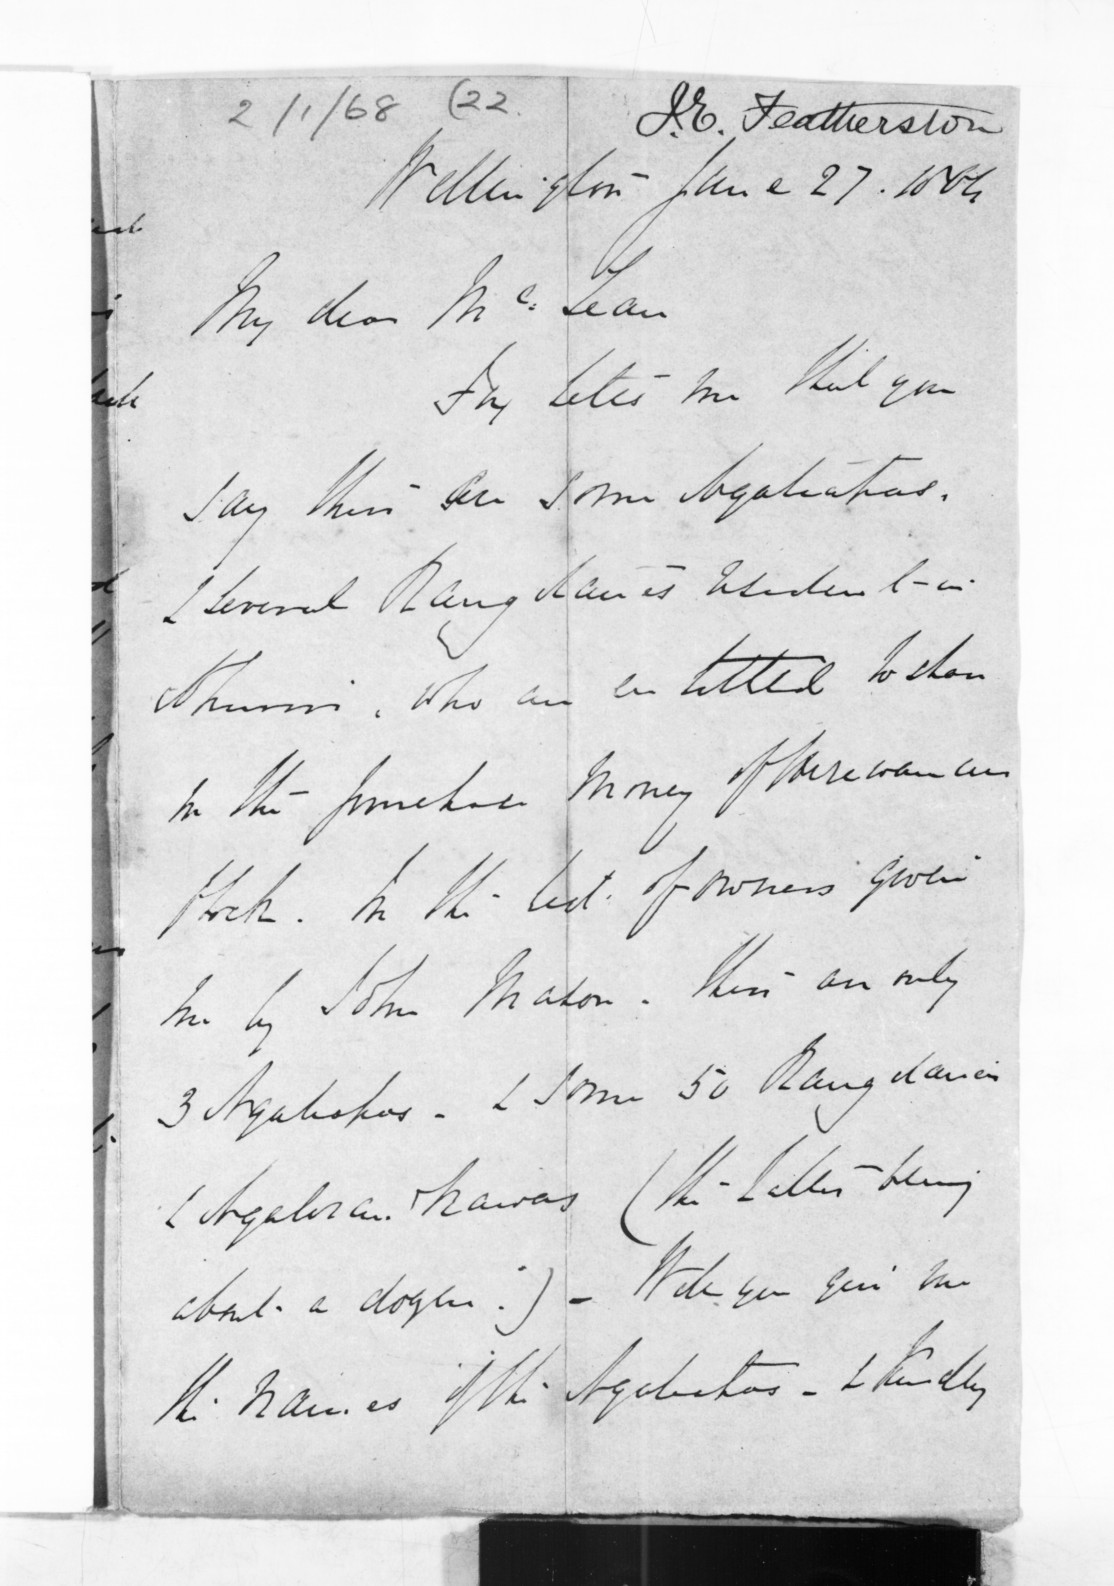 2/1/68 (22.
I.E. Featherston
Wellington June 27. 1866
My dear Mc. Lean
Fox tells me that you
say there are some Ngatiapas.
& several Rangitanes resident in
Ahuriri, who are entitled to share
in the purchase money of the Manawatu
Block. In the list of owners given
me by John Mason. there are only
3 Ngatiapas - & some 50 Rangitanes
& Ngati (the latter being
about a dozen.) - Will you give me
the names of the Ngatiapas - & kindly